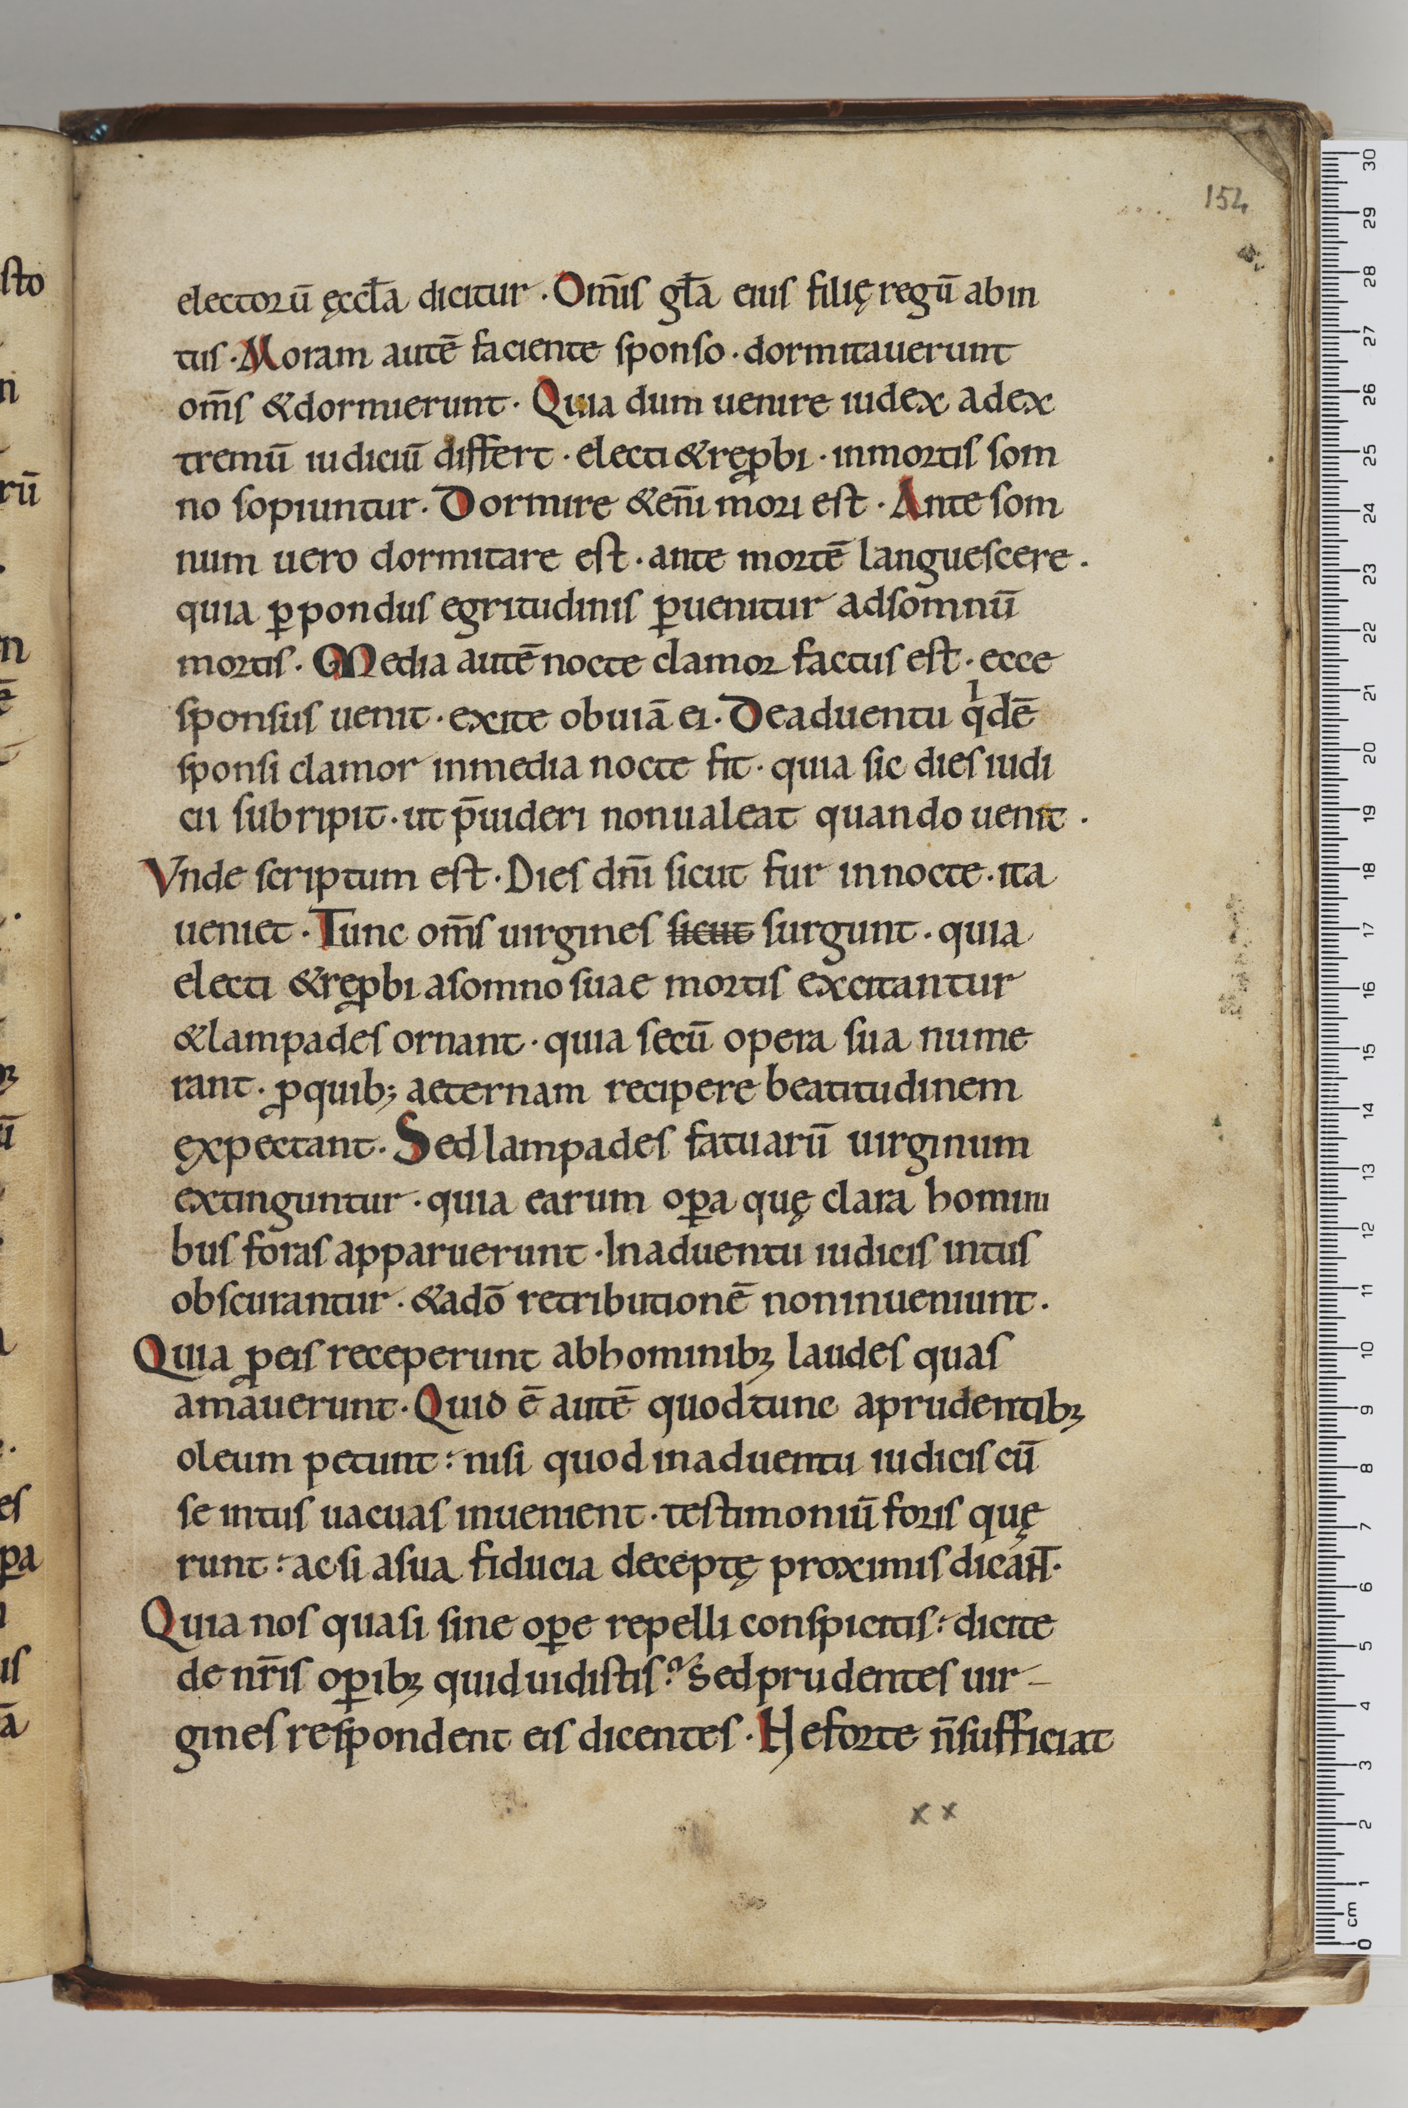 154
electorū ęccl̄a dicitur · Om̄is gl̄a eius filię regū abin
tus · Moram autē faciente sponso · dormitauerunt
om̄s & dormierunt · Quia dum uenire iudex ad ex
tremū iudiciū differt · electi & rep̱bi · in mortis som
no sopiuntur · Dormire & eni̅ mori est · Ante som
num uero dormitare est · ante mortē languescere ·
quia ꝑ pondus egritudinis ꝑuenitur ad somnū
mortis · Media autē nocte clamor factus est · ecce
sponsus uenit · exite obuiā ei · De aduentu qͥdē
sponsi clamor in media nocte fit · quia sic dies iudi
cii subripit · ut p̄uideri non ualeat quando uenit ·
Vnde scriptum est · Dies dn̄i sicut fur in nocte · ita
ueniet · Tunc om̄s uirgines sicut surgunt · quia
electi & reꝓbi a somno suae mortis excitantur
& lampades ornant · quia secū opera sua nume
rant · ꝓ quib; aeternam recipere beatitudinem
ęxpectant · Sed lampades fatuarū uirginum
extinguntur · quia earum oꝑa quę clara homini
bus foras apparuerunt · In aduentu iudicis intus
obscurantur · & a dō retributionē non inueniunt ·
Quia ꝓ eis receperunt ab hominibꝫ laudes quas
amauerunt · Quid ē autē quod tunc a prudentibꝫ
oleum petunt : nisi quod in aduentu iudicis cū
se intus uacuas inuenient · testimoniū foris quę
runt : ac si a sua fiducia deceptę proximis dicant ·
Quia nos quasi sine oꝑe repelli conspicitis : dicite
de nr̄is oꝑibꝫ quid uidistis ? Sed prudentes uir-
gines respondent eis dicentes · Ne forte n̄ sufficiat
x x